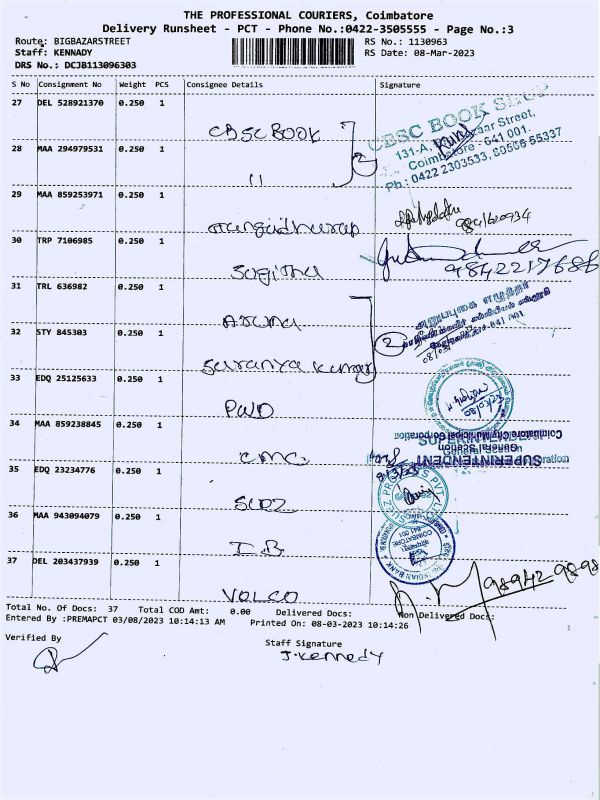 THE PROFESSIONAL COURIERS, Coimbatore
Delivery Runsheet - PCT - Phone No.:0422-3505555 - Page No.:3
Route: BIGBAZARSTREET RS No.: 1130963
Staff: KENNADY RS Date: 08-Mar-2023
DRS No.: DCJB113096303
S No Consignment No Weight PCS Consignee Details Signature
27 DEL 528921370 0.250 1
CBSC BOOK
CBSC BOOK SHOP
131-A, Street,
Coimbatore - 641 001.
Ph : 0422 2303533,
28 MAA 294979531 0.250 1
"
2
29 MAA 859253971 0.250 1
30 TRP 7106985 0.250 1
Sugitha
9842217686
31 TRL 636982 0.250 1
Aruna
2
32 STY 845303 0.250 1
Saranya Kumar
33 EDQ 25125633 0.250 1
PWD
08/03/23
34 MAA 859238845 0.250 1
CMC
SUPERINTENDENT
General Section
Coimbatore City Municipal Corporation
35 EDQ 23234776 0.250 1
SUEZ
36 MAA 943094079 0.250 1
IB
INDIAN BANK
COIMBATORE
641 001
37 DEL 203437939 0.250 1
VOLCO
98942 9898
Total No. Of Docs: 37 Total COD Amt: 0.00 Delivered Docs: Non Delivered Docs:
Entered By :PREMAPCT 03/08/2023 10:14:13 AM Printed On: 08-03-2023 10:14:26
Verified By Staff Signature
J.Kennedy